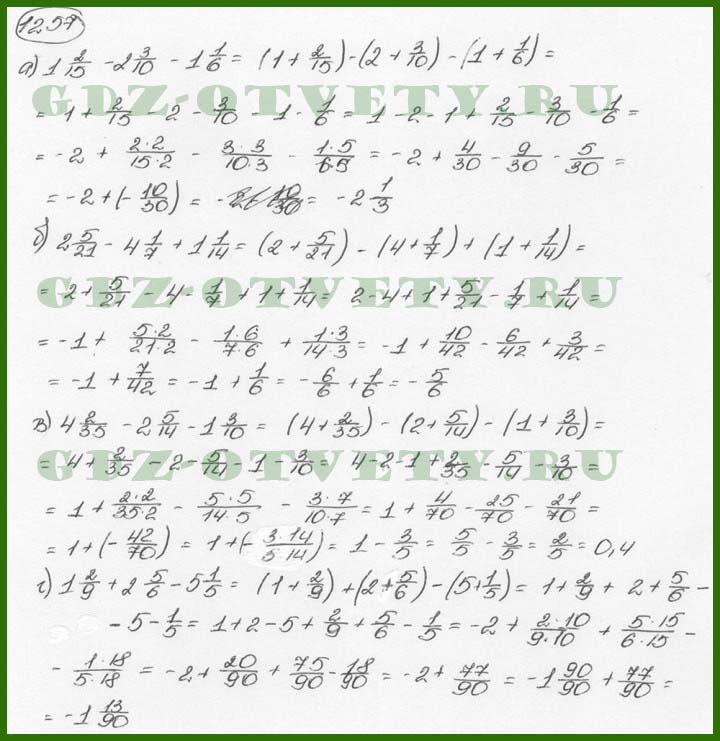 1257
а) 1 2/15 - 2 3/10 - 1 1/6 = (1 + 2/15) - (2 + 3/10) - (1 + 1/6) =
GDZ-OTVETY.RU
= 1 + 2/15 - 2 - 3/10 - 1 - 1/6 = 1 - 2 - 1 + 2/15 - 3/10 - 1/6 =
= -2 + 2·2/15·2 - 3·3/10·3 - 1·5/6·5 = -2 + 4/30 - 9/30 - 5/30 =
= -2 + (-10/30) = = -2 1/3
б) 2 5/21 - 4 1/7 + 1 1/14 = (2 + 5/21) - (4 + 1/7) + (1 + 1/14) =
GDZ-OTVETY.RU
= 2 + 5/21 - 4 - 1/7 + 1 + 1/14 = 2 - 4 + 1 + 5/21 - 1/7 + 1/14 =
= -1 + 5·2/21·2 - 1·6/7·6 + 1·3/14·3 = -1 + 10/42 - 6/42 + 3/42 =
= -1 + 7/42 = -1 + 1/6 = -6/6 + 1/6 = -5/6
в) 4 2/35 - 2 5/14 - 1 3/10 = (4 + 2/35) - (2 + 5/14) - (1 + 3/10) =
GDZ-OTVETY.RU
= 4 + 2/35 - 2 - 5/14 - 1 - 3/10 = 4 - 2 - 1 + 2/35 - 5/14 - 3/10 =
= 1 + 2·2/35·2 - 5·5/14·5 - 3·7/10·7 = 1 + 4/70 - 25/70 - 21/70 =
= 1 + (-42/70) = 1 + (-3·14/5·14) = 1 - 3/5 = 5/5 - 3/5 = 2/5 = 0,4
г) 1 2/9 + 2 5/6 - 5 1/5 = (1 + 2/9) + (2 + 5/6) - (5 + 1/5) = 1 + 2/9 + 2 + 5/6 -
- 5 - 1/5 = 1 + 2 - 5 + 2/9 + 5/6 - 1/5 = -2 + 2·10/9·10 + 5·15/6·15 -
- 1·18/5·18 = -2 + 20/90 + 75/90 - 18/90 = -2 + 77/90 = -1 90/90 + 77/90 =
= -1 13/90